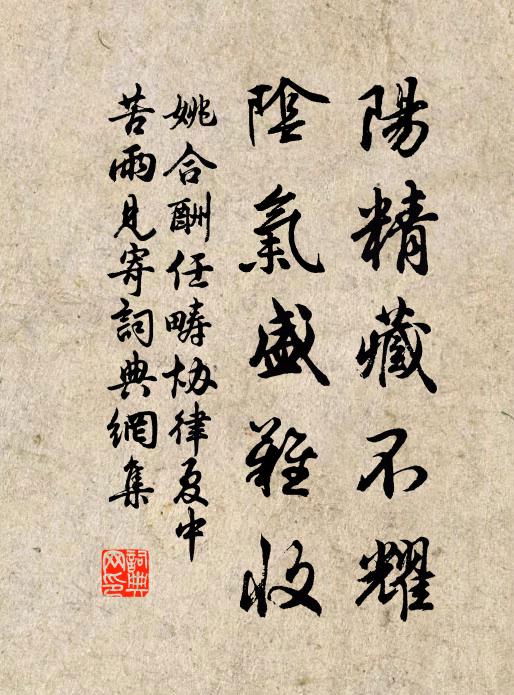 陽精藏不耀
陰氣盛難收
姚合酬任疇协律夏中
苦雨見寄詞典網集
詞典网印